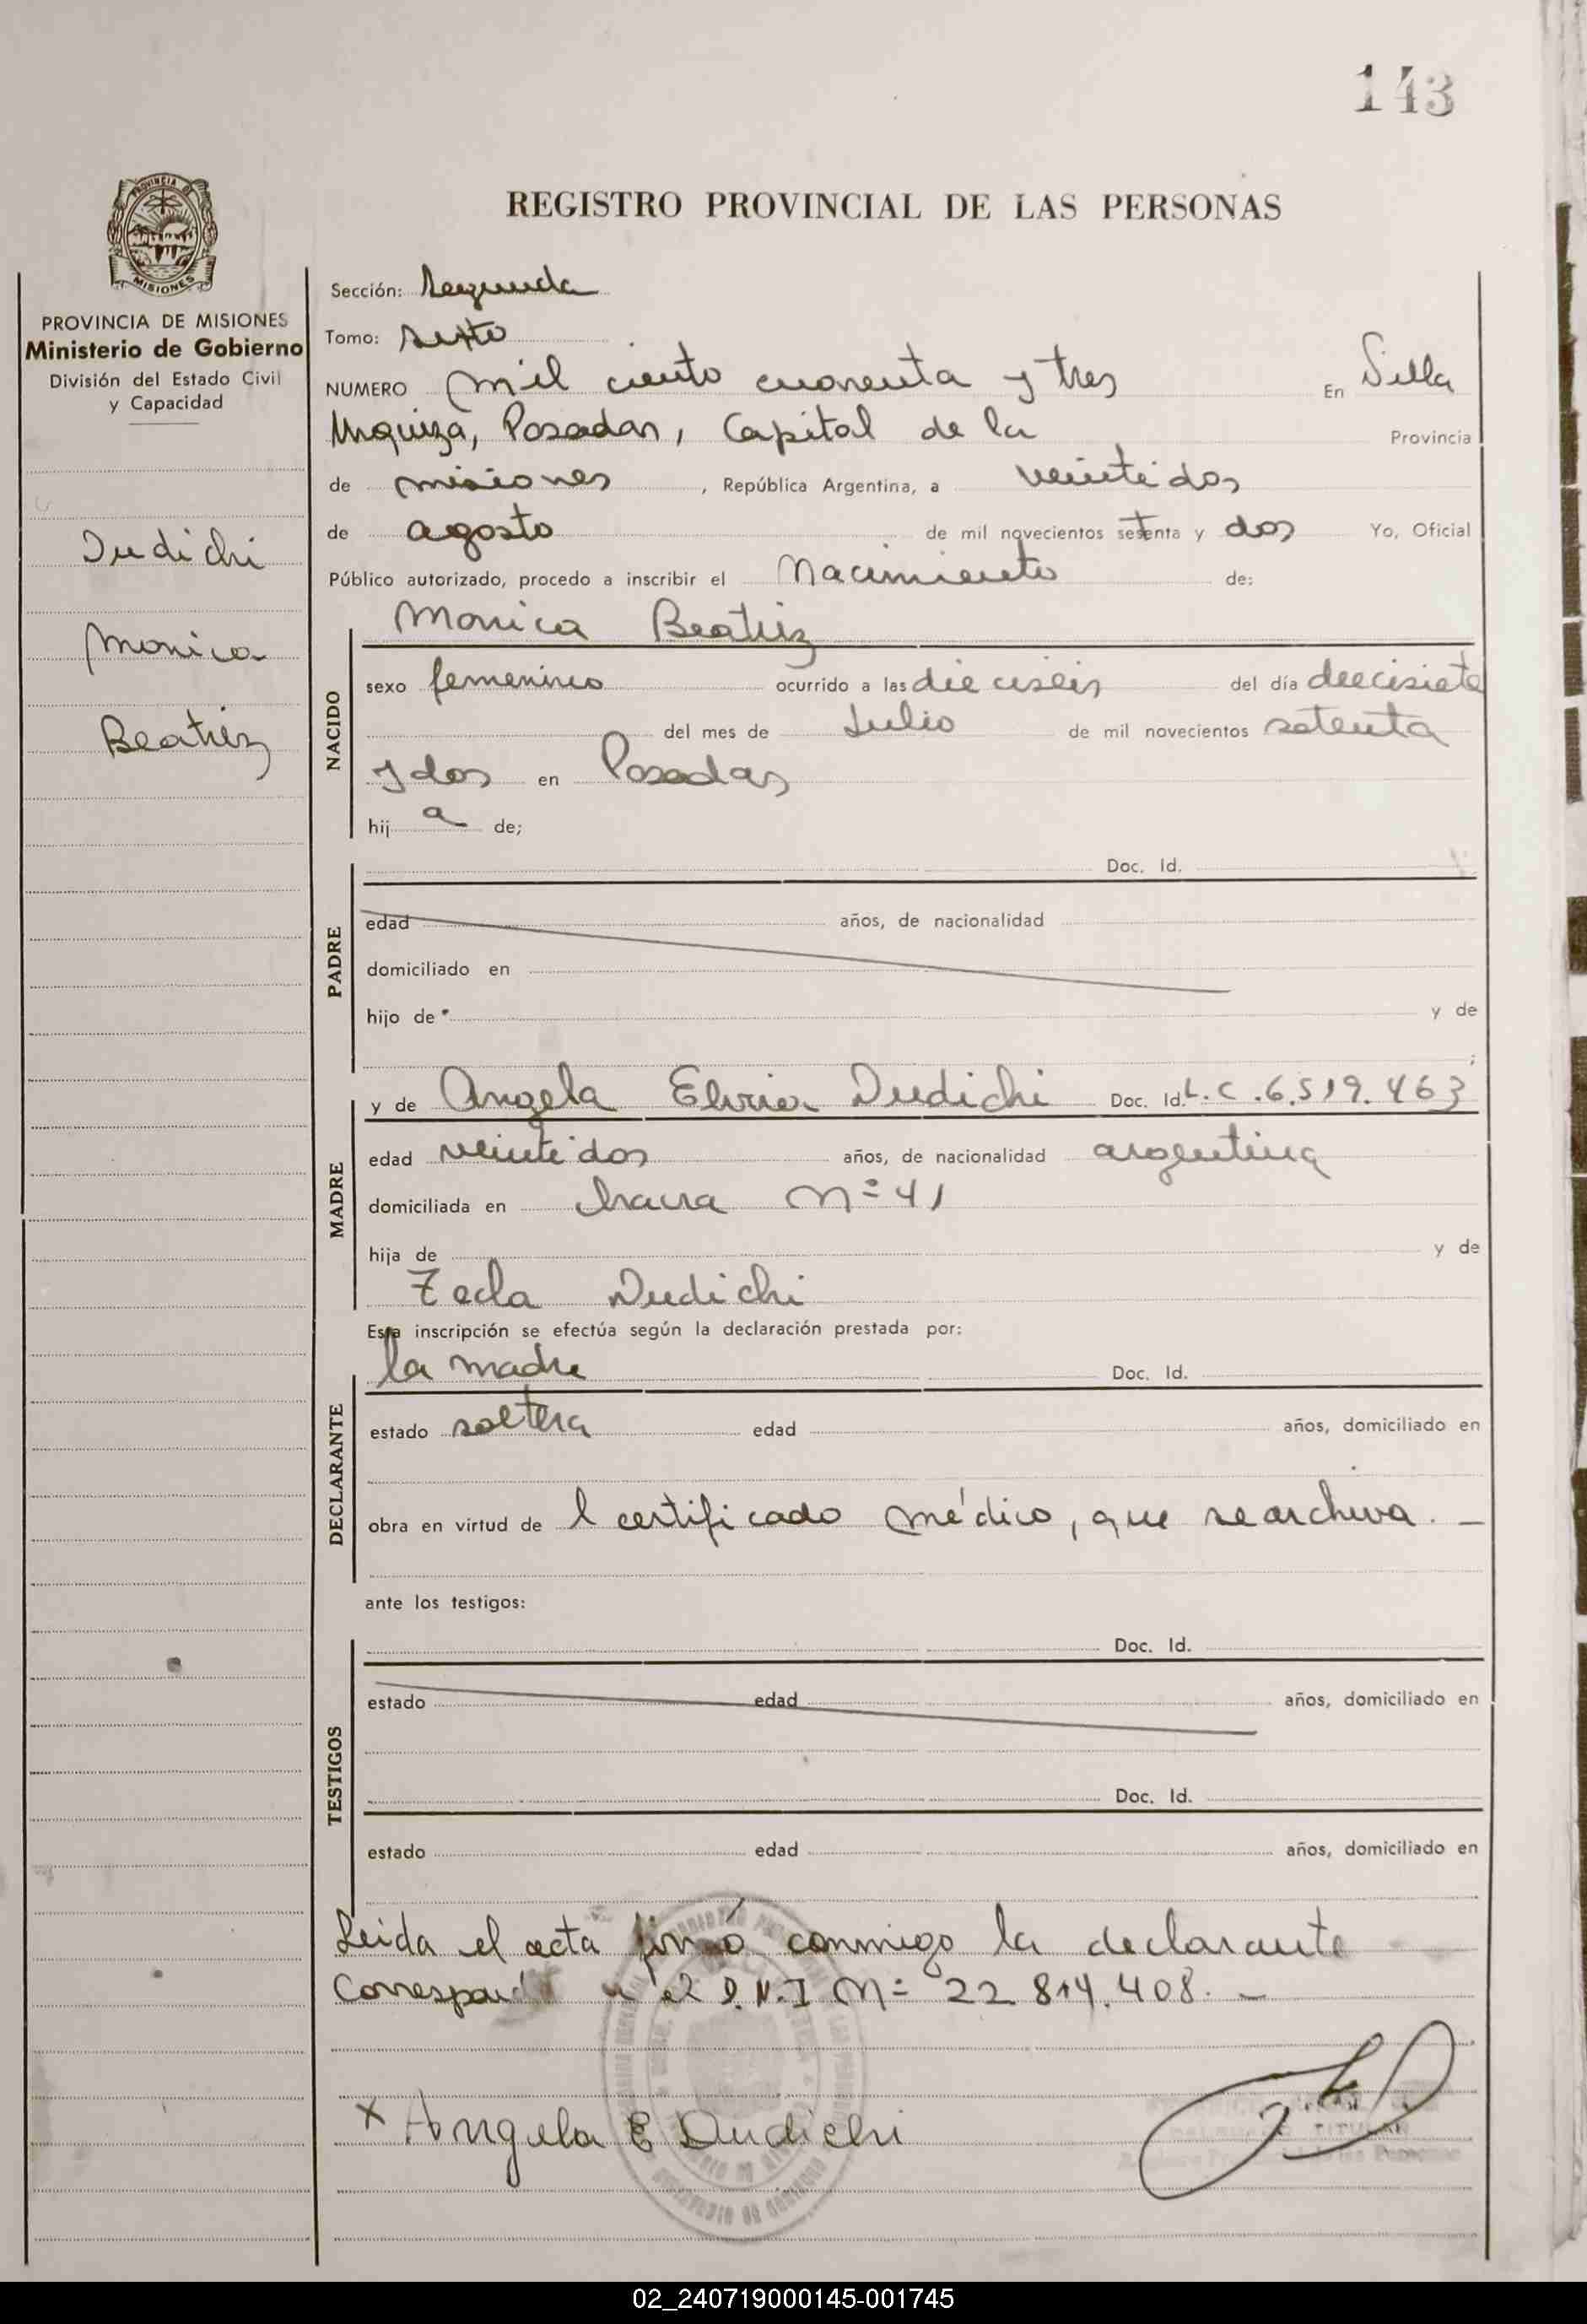 143
PROVINCIA DE MISIONES
REGISTRO PROVINCIAL DE LAS PERSONAS
PROVINCIA DE MISIONES
Ministerio de Gobierno
División del Estado Civil
y Capacidad
Dudichi
Monica
Beatriz
Sección: Segunda
Tomo: sexto
NUMERO mil ciento cuarenta y tres En Villa
Urquiza, Posadas, Capital de la Provincia
de misiones, República Argentina, a veintidos
de agosto de mil novecientos setenta y dos Yo, Oficial
Público autorizado, procedo a inscribir el Nacimiento de:
Monica Beatriz
NACIDO
sexo femenino ocurrido a las dieciseis del día diecisiete
del mes de Julio de mil novecientos setenta
y dos en Posadas
hij a de;
PADRE
Doc. Id.
edad años, de nacionalidad
domiciliado en
hijo de y de
;
MADRE
y de Angela Elvira Dudichi Doc. Id. L.C.6.519.463
edad veintidos años, de nacionalidad argentina
domiciliada en chacra Nº 41
hija de y de
Tecla Dudichi
Esta inscripción se efectúa según la declaración prestada por:
DECLARANTE
la madre Doc. Id.
estado soltera edad años, domiciliado en
obra en virtud de l certificado médico, que se archiva. –
ante los testigos:
TESTIGOS
Doc. Id.
estado edad años, domiciliado en
Doc. Id.
estado edad años, domiciliado en
Leida el acta firmó conmigo la declarante
el D.N.I Nº 22.814.408. –
x Angela E Dudichi
02_240719000145-001745